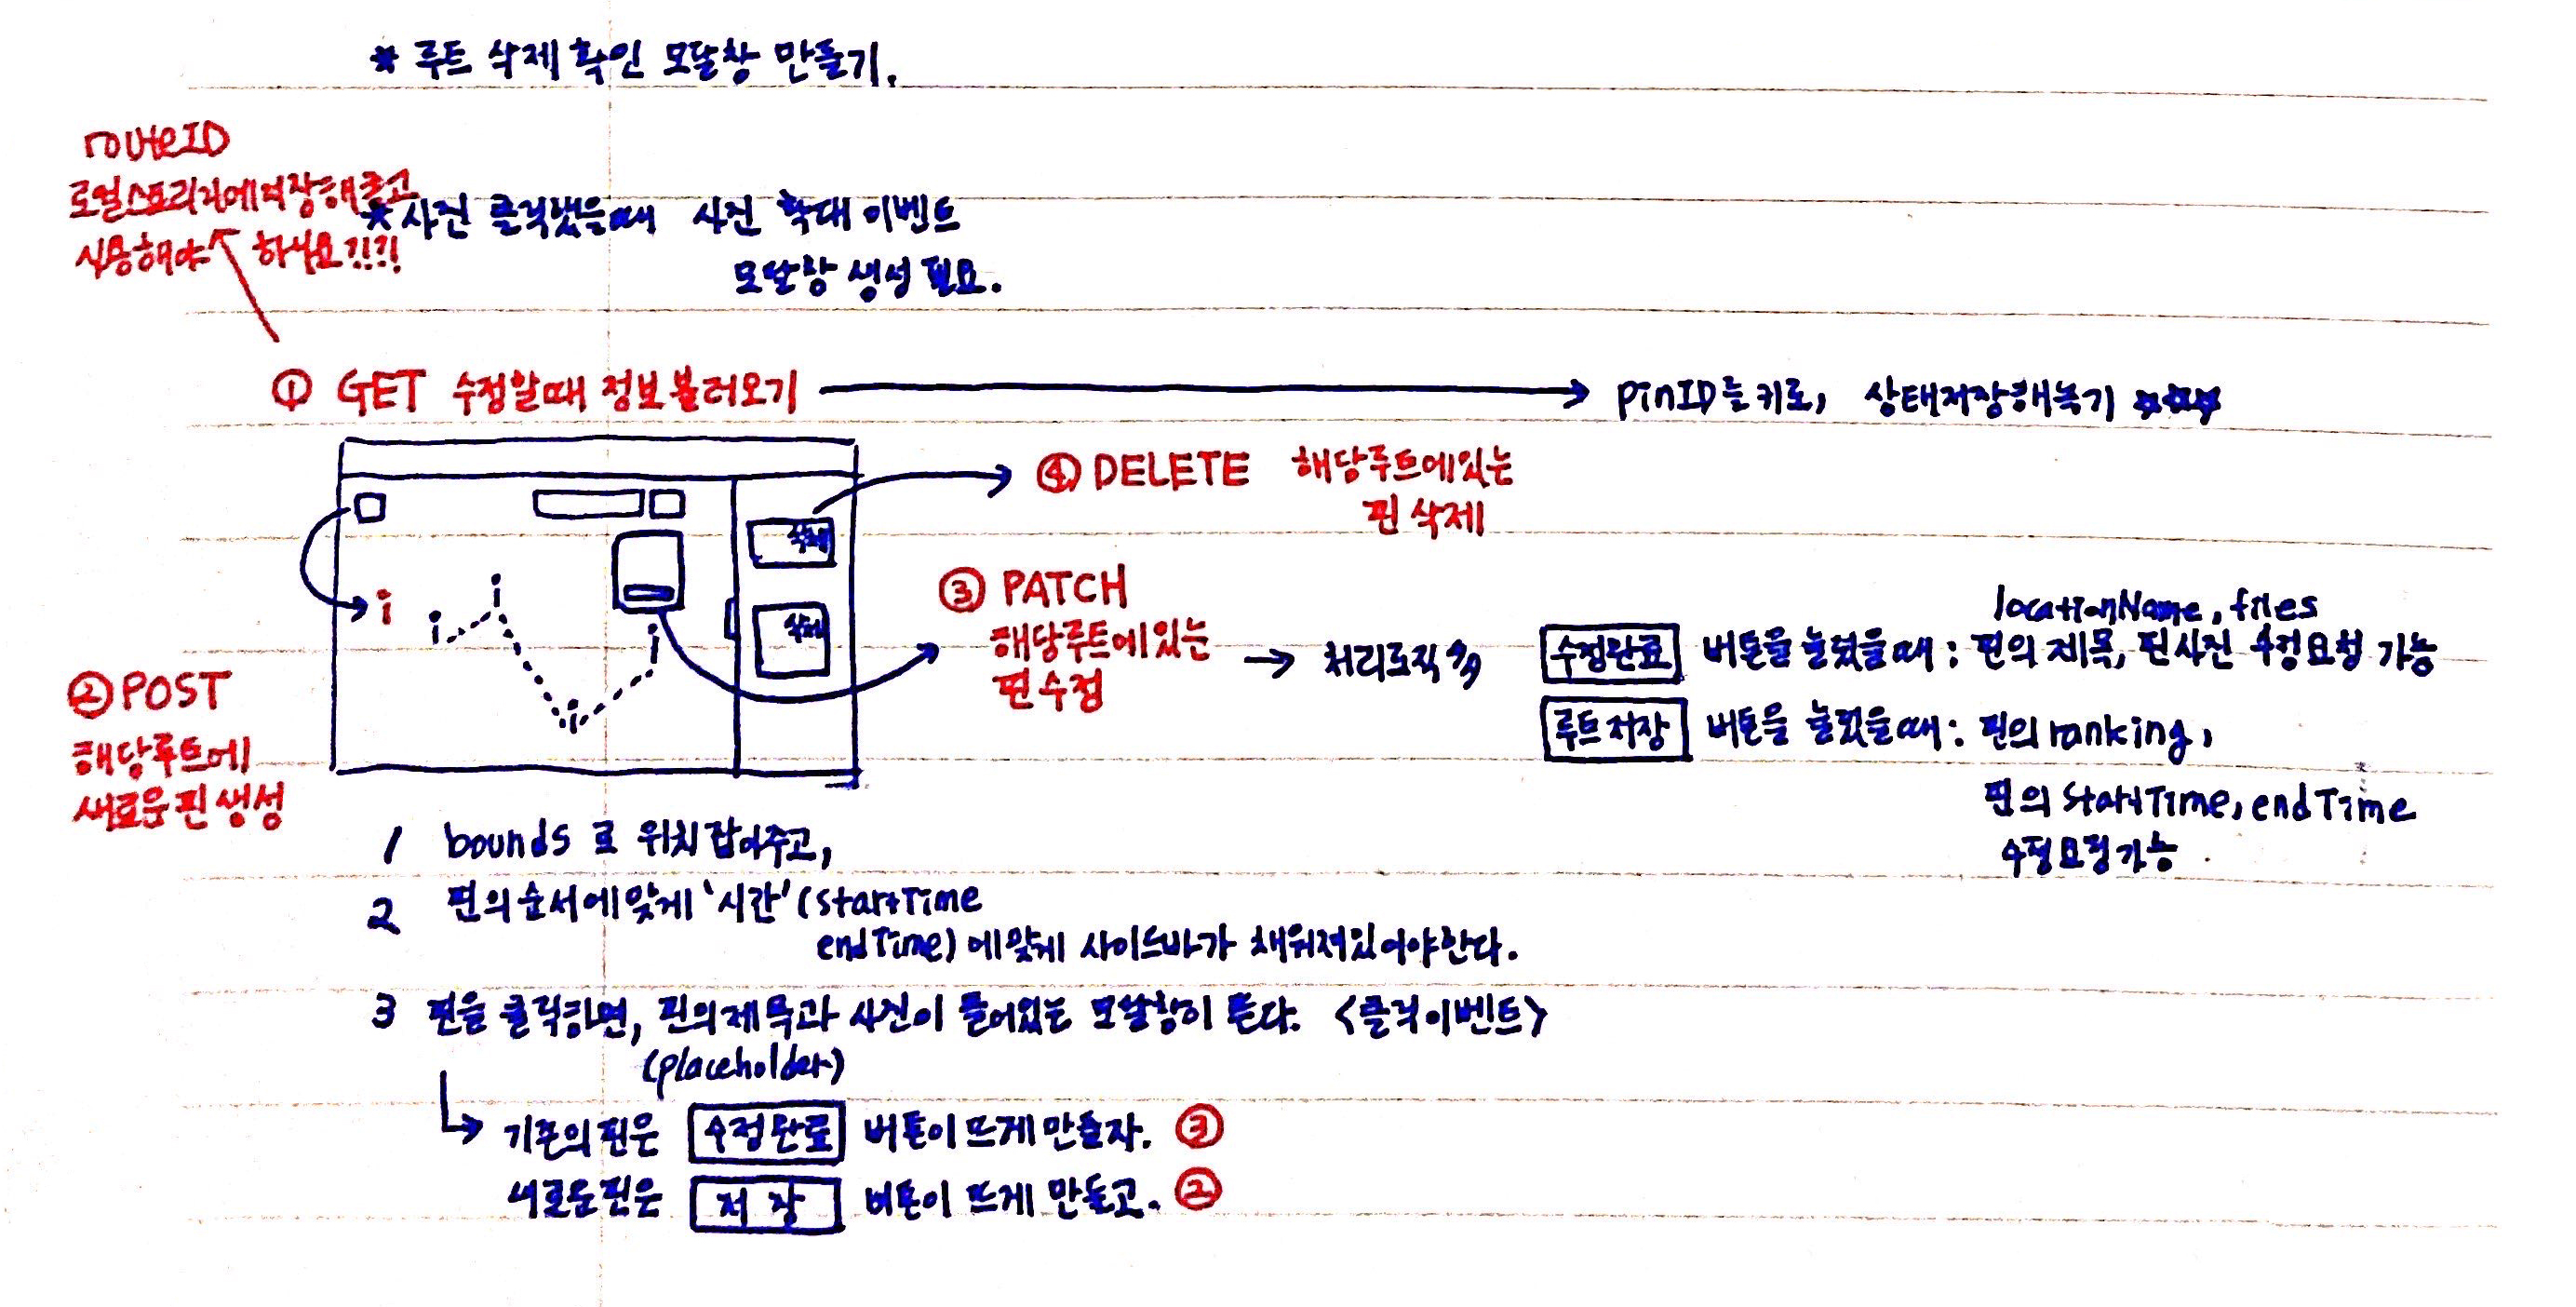 * 루트 삭제 확인 모달창 만들기.
routeID
로컬스토리지에저장해놓고
사용해야 하나요?!?!
*사진 클릭했을때 사진 확대 이벤트
모달창 생성 필요.
① GET 수정할때 정보 불러오기
pinID를 키로, 상태저장해놓기 ☆☆☆
④ DELETE 해당루트에있는
핀 삭제
삭제
삭제
③ PATCH
해당루트에있는
핀수정
처리로직
locationName, files
수정완료 버튼을 눌렀을때 : 핀의 제목, 핀사진 수정요청 가능
루트저장 버튼을 눌렀을때 : 핀의 ranking,
핀의 startTime, endTime
수정요청가능
② POST
해당루트에
새로운핀생성
1 bounds 로 위치 잡아주고,
2 핀의순서에맞게 '시간' (startTime
endTime) 에맞게 사이드바가 채워져있어야한다.
3 핀을 클릭하면, 핀의제목과 사진이 들어있는 모달창이 뜬다. <클릭이벤트>
(placeholder)
기존의핀은 수정완료 버튼이뜨게만들자. ③
새로운핀은 저장 버튼이 뜨게 만들고. ②